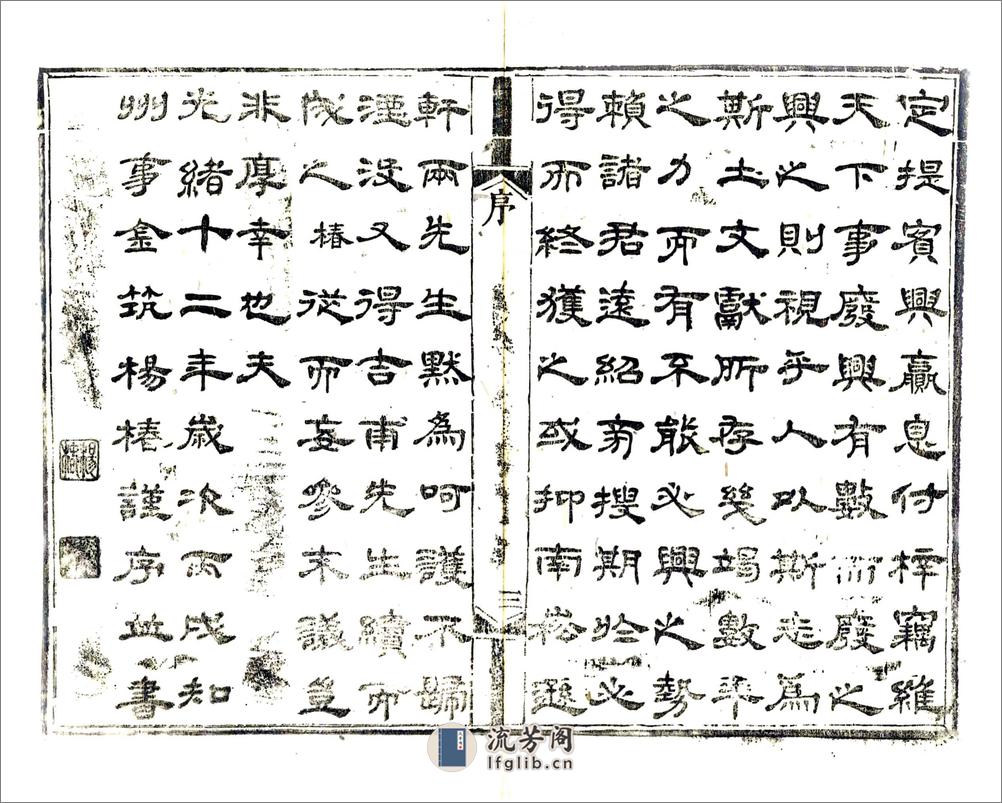 定提賓興贏息付梓竊維
天下事廢興有數而廢之
興之則視乎人以斯志為
斯土文獻所存幾竭數年
之力而有不能必興之勢
賴諸君遠紹旁搜期於必
得而終獲之或抑南崧遜
序
三
軒兩先生默為呵護不歸
湮没又得吉甫先生續而
成之椿從而妄參末議豈
非厚幸也夫
光緒十二年歲次丙戌知
州事金筑楊椿謹序並書
流芳阁
lfglib.cn